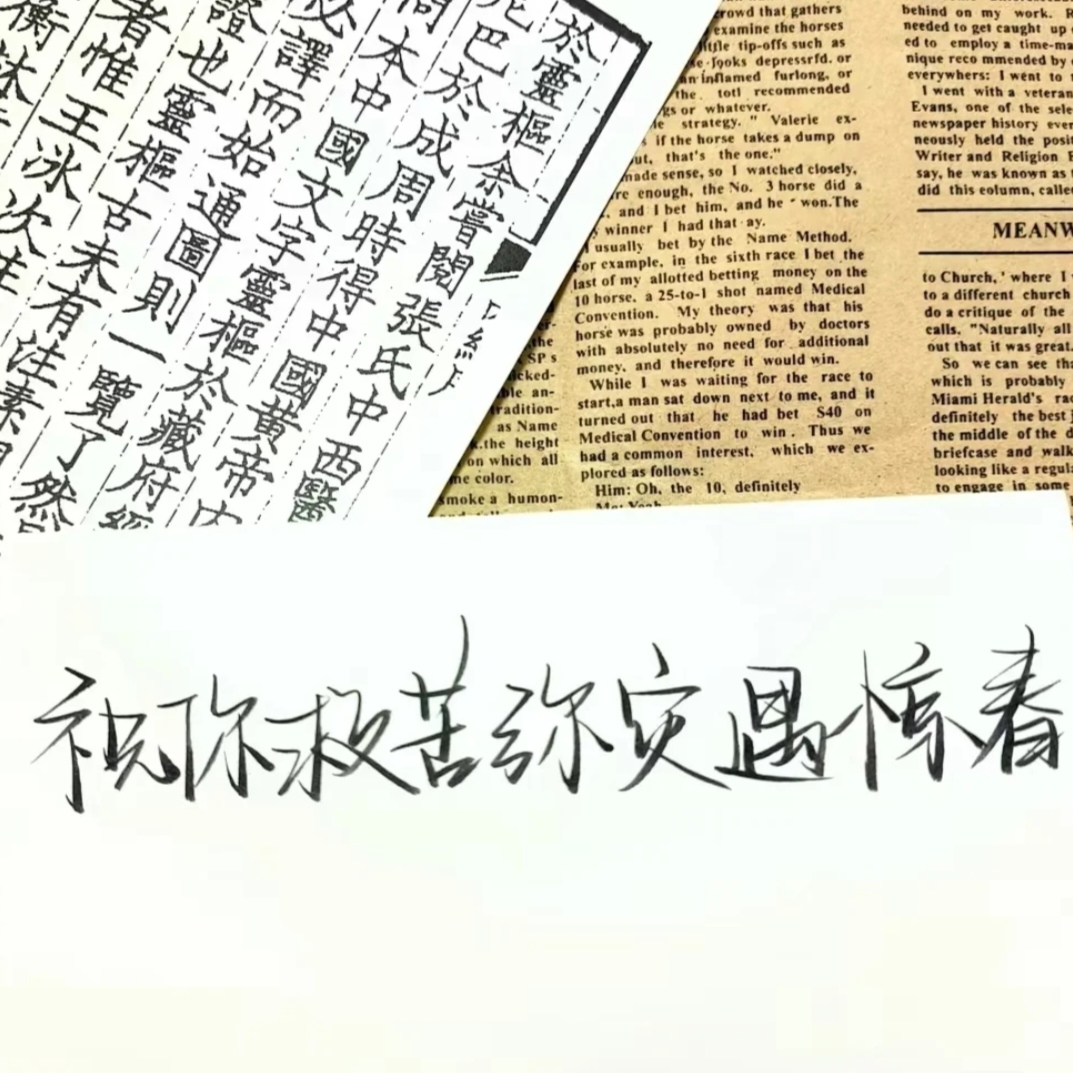 於靈樞余嘗閱張氏中西醫
巴於成周時得中國黃帝内
本中國文字靈樞於藏府經
必譯而始通圖則一覽了然
證也靈樞古未有注素
者惟王冰次注
rowd that gathers
examine the horses
little tip-offs such as
fooks depressrfd. or
an inflamed furlong, or
the. totl recommended
gs or whatever.
le strategy. " Valerie ex-
if the horse takes a dump on
ut, that's the one."
made sense, so I watched closely,
re enough, the No. 3 horse did a
, and I bet him, and he won.The
winner I had that ay.
I usually bet by the Name Method.
For example, in the sixth race I bet the
last of my allotted betting money on the
10 horse, a 25-to-1 shot named Medical
Convention. My theory was that his
horse was probably owned by doctors
with absolutely no need for additional
money, and therefore it would win.
While I was waiting for the race to
start,a man sat down next to me, and it
turned out that he had bet S40 on
Medical Convention to win. Thus we
had a common interest, which we ex-
plored as follows:
Him: Oh, the 10, definitely
Me: Yeah
the
SP s
icked-
ble an-
tradition-
as Name
the height
on which all
me color.
smoke a human-
behind on my work.
needed to get caught up
ed to employ a time-ma
nique reco mmended by
everywhere: I went to
I went with a veteran
Evans, one of the sele
newspaper history ever
neously held the posit
Writer and Religion
say, he was known as
did this eolumn, calle
MEANW
to Church,' where I
to a different church
do a critique of the
calls. "Naturally all
out that it was great.
So we can see tha
which is probably
Miami Herald's rac
definitely the best
the middle of the d
briefcase and walk
looking like a regula
to engage in some
祝你救苦弥灾遇惊春